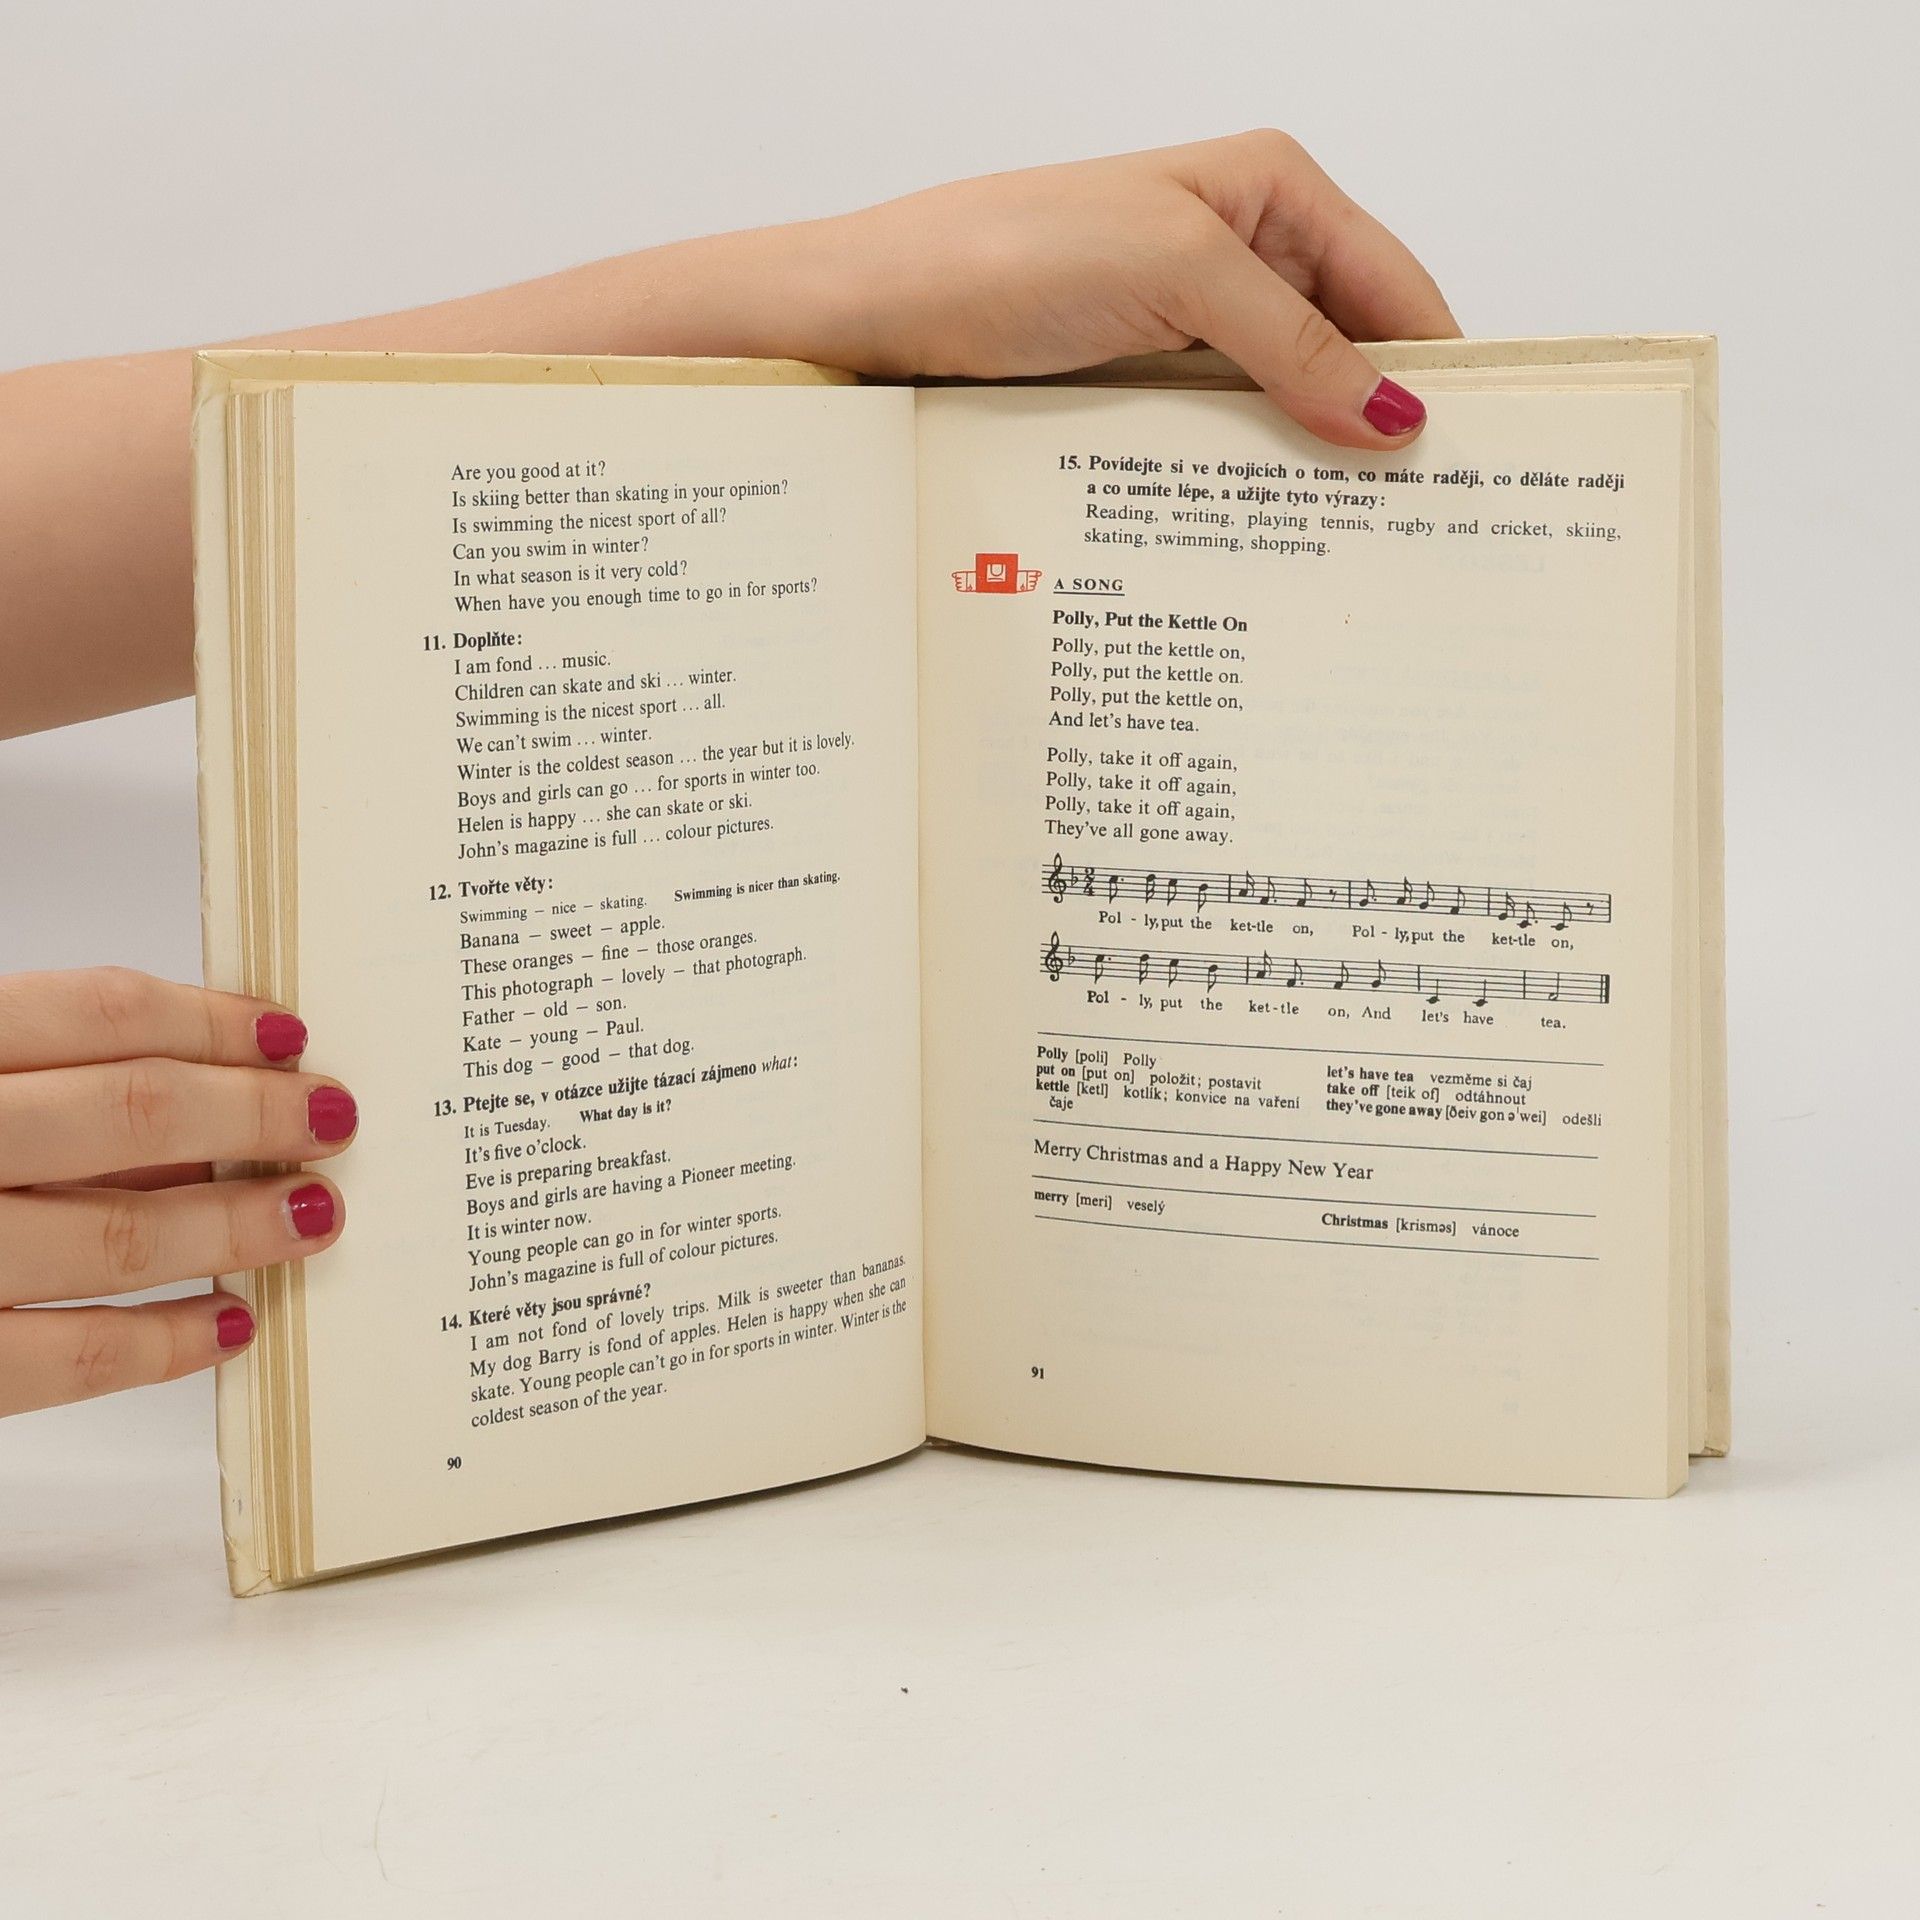 Are you good at it?
Is skiing better than skating in your opinion?
Is swimming the nicest sport of all?
Can you swim in winter?
In what season is it very cold?
When have you enough time to go in for sports?
11. Doplňte:
I am fond ... music.
Children can skate and ski ... winter.
Swimming is the nicest sport ... all.
We can't swim ... winter.
Winter is the coldest season ... the year but it is lovely.
Boys and girls can go ... for sports in winter too.
Helen is happy ... she can skate or ski.
John's magazine is full ... colour pictures.
12. Tvořte věty:
Swimming – nice – skating. Swimming is nicer than skating.
Banana – sweet – apple.
These oranges – fine – those oranges.
This photograph – lovely – that photograph.
Father – old – son.
Kate – young – Paul.
This dog – good – that dog.
13. Ptejte se, v otázce užijte tázací zájmeno what:
It is Tuesday. What day is it?
It's five o'clock.
Eve is preparing breakfast.
Boys and girls are having a Pioneer meeting.
It is winter now.
Young people can go in for winter sports.
John's magazine is full of colour pictures.
14. Které věty jsou správné?
I am not fond of lovely trips. Milk is sweeter than bananas.
My dog Barry is fond of apples. Helen is happy when she can
skate. Young people can't go in for sports in winter. Winter is the
coldest season of the year.
90
15. Povídejte si ve dvojicích o tom, co máte raději, co děláte raději
a co umíte lépe, a užijte tyto výrazy:
Reading, writing, playing tennis, rugby and cricket, skiing,
skating, swimming, shopping.
A SONG
Polly, Put the Kettle On
Polly, put the kettle on,
Polly, put the kettle on.
Polly, put the kettle on,
And let's have tea.
Polly, take it off again,
Polly, take it off again,
Polly, take it off again,
They've all gone away.
2
4
Pol - ly, put the ket-tle on, Pol - ly, put the ket-tle on,
Pol - ly, put the ket-tle on, And let's have tea.
Polly [poli] Polly
put on [put on] položit; postavit
kettle [ketl] kotlík; konvice na vaření
čaje
let's have tea vezměme si čaj
take off [teik of] odtáhnout
they've gone away [ðeiv gon ə'wei] odešli
Merry Christmas and a Happy New Year
merry [meri] veselý
Christmas [krisməs] vánoce
91